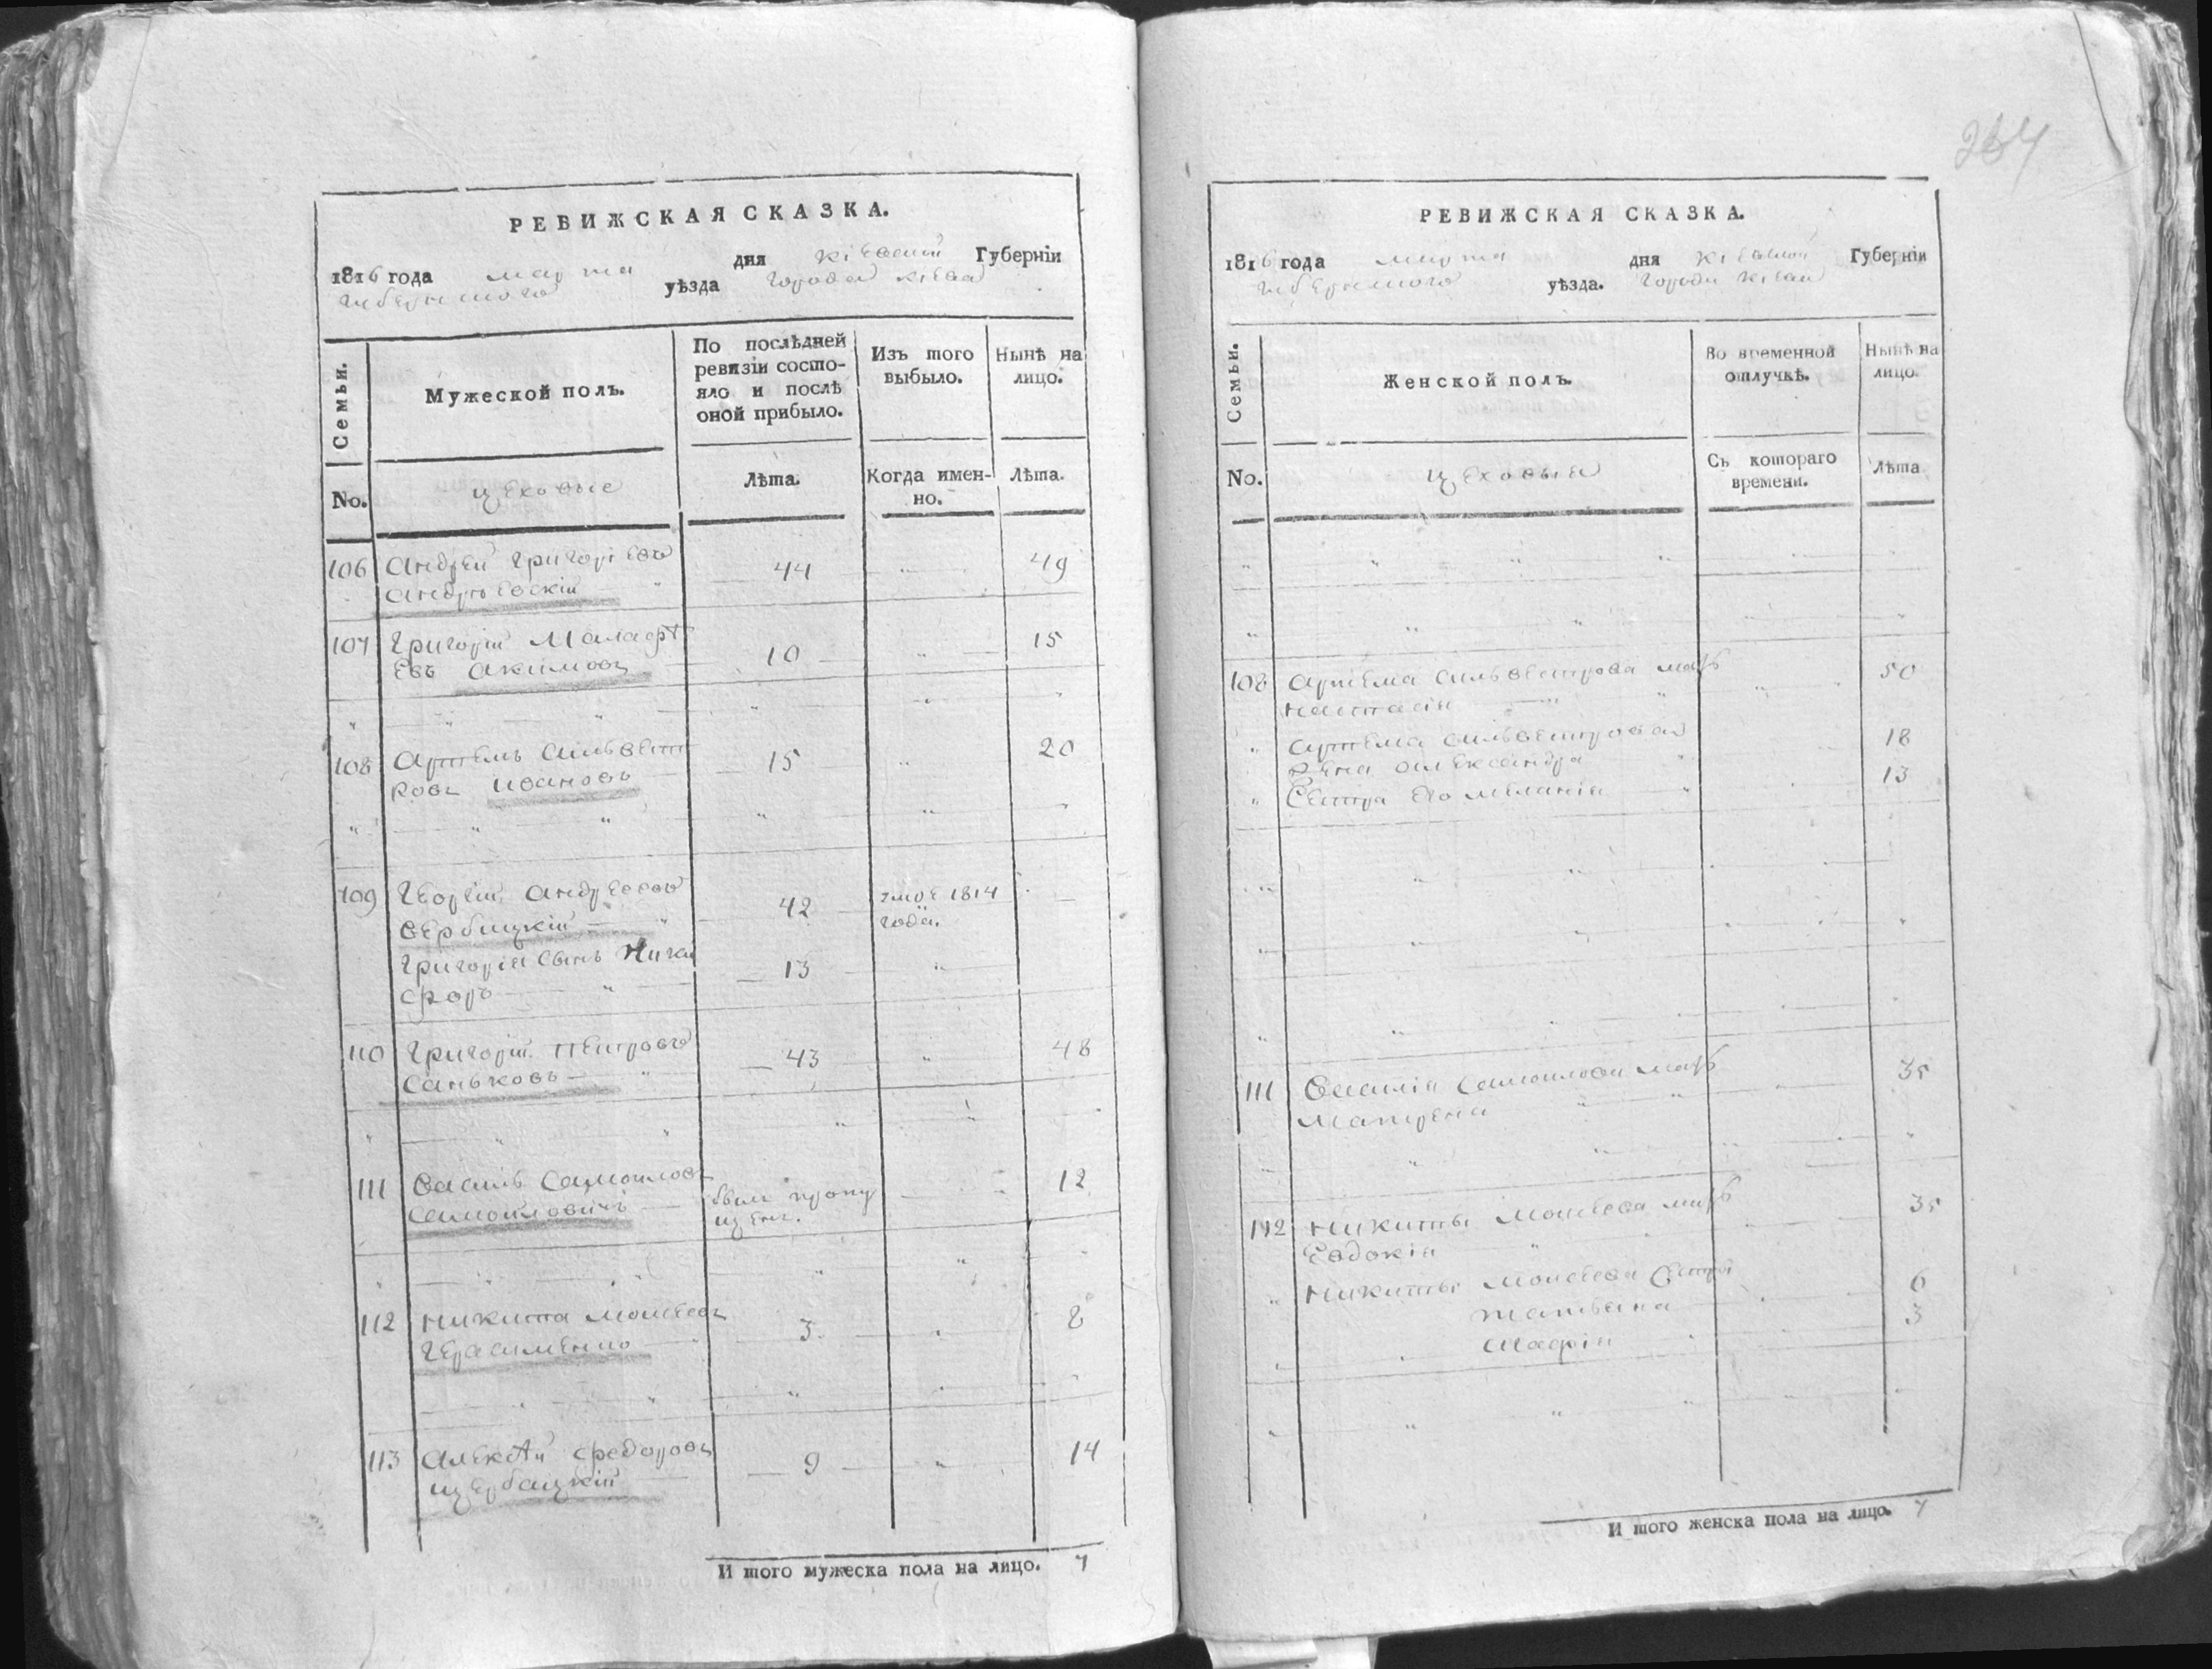 РЕВИЖСКАЯ СКАЗКА.
1816 года марта дня Кіевской Губерніи
губернского уѣзда города Кіева
Семьи.
Мужеской полъ.
По послѣдней
ревизіи состо-
яло и послѣ
оной прибыло.
Изъ того
выбыло.
Нынѣ на
лицо.
No.
цеховые
Лѣта.
Когда имен-
но.
Лѣта.
106 Андрей Григорıевъ 44 49
Андрıевскій
107 Григорій Малафѣ 10 15
евъ Акимовъ
108 Артемъ Сильвест 15 20
ровъ Ивановъ
109 Георгій Андреевъ 42 1814
Вербицкій года.
Григорія сынъ Ники 13
форъ
110 Григорій Петровъ 43 48
Саньковъ
111 Василь Самоиловъ былъ пропу 12
Самойловичъ щенъ.
112 Никита Моисеевъ 3 8
Герасименко
113 Алексѣй Федоровъ 9 14
Щербацкій
И того мужеска пола на лицо. 7
264
РЕВИЖСКАЯ СКАЗКА.
1816 года марта дня Кіевской Губерніи
губернского уѣзда. города Кіева
Семьи.
Женской полъ.
Во временной
отлучкѣ.
Нынѣ на
лицо.
No.
цеховыя
Съ котораго
времени.
Лѣта
108 Артема Сильвестрова мать 50
Настасія
Артема Сильвестрова
жена Александра 18
Сестра его Меланія 13
111 Василія Самоилова мать 35
Матрена
112 Никиты Моисеева мать 35
Евдокія
Никиты Моисеева сестры
Татьяна 6
Мафія 3
И того женска пола на лицо. 7